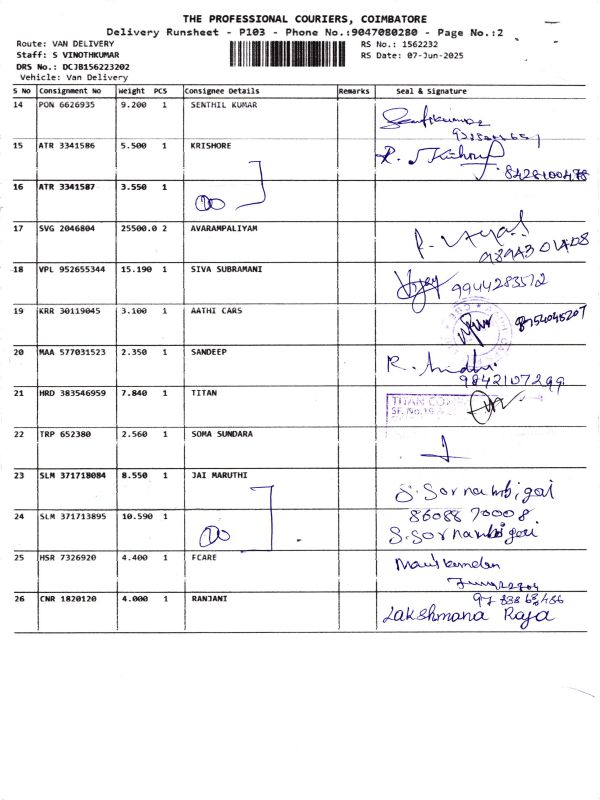 THE PROFESSIONAL COURIERS, COIMBATORE
Delivery Runsheet - P103 - Phone No.:9047080280 - Page No.:2
Route: VAN DELIVERY RS No.: 1562232
Staff: S VINOTHKUMAR RS Date: 07-Jun-2025
DRS No.: DCJB156223202
Vehicle: Van Delivery
S No Consignment No Weight PCS Consignee Details Remarks Seal & Signature
14 PON 6626935 9.200 1 SENTHIL KUMAR
15 ATR 3341586 5.500 1 KRISHORE
8428100478
16 ATR 3341587 3.550 1
17 SVG 2046804 25500.0 2 AVARAMPALIYAM
18 VPL 952655344 15.190 1 SIVA SUBRAMANI Vijay 9944283572
19 KRR 30119045 3.100 1 AATHI CARS 8754045207
20 MAA 577031523 2.350 1 SANDEEP
9842107299
21 HRD 383546959 7.840 1 TITAN TITAN
SF. No.
22 TRP 652380 2.560 1 SOMA SUNDARA
23 SLM 371718084 8.550 1 JAI MARUTHI S.Sornambigai
86088 70008
24 SLM 371713895 10.590 1 S.Sornambigai
25 HSR 7326920 4.400 1 FCARE
26 CNR 1820120 4.000 1 RANJANI
Lakshmana Raja